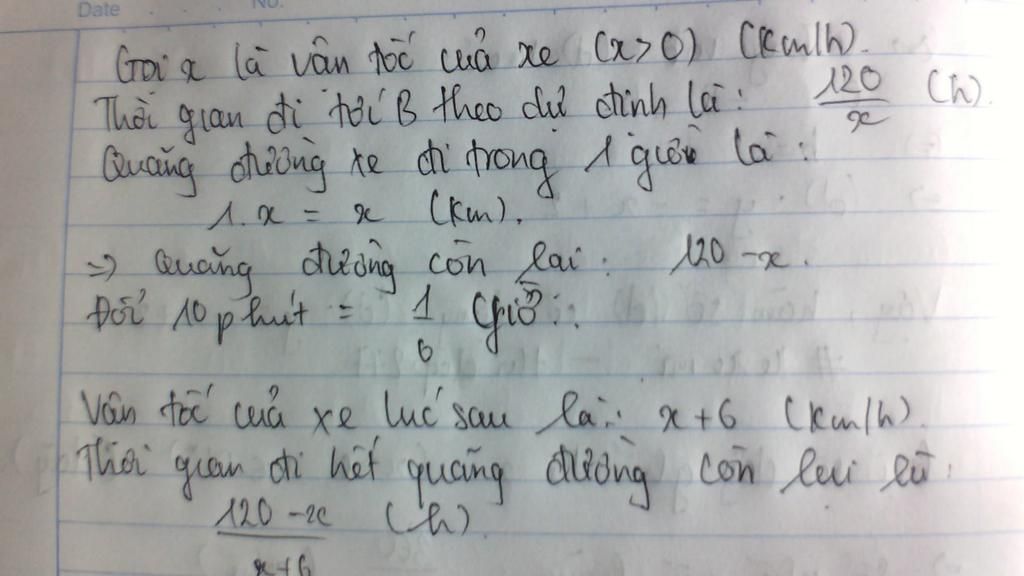 Date No.
Gọi x là vận tốc của xe (x>0) (Km/h).
Thời gian đi tới B theo dự định là: 120/x (h)
Quãng đường xe đi trong 1 giờ là:
1.x = x (Km).
=> Quãng đường còn lại: 120-x.
Đổi 10 phút = 1/6 (giờ).
Vận tốc của xe lúc sau là: x+6 (Km/h)
Thời gian đi hết quãng đường còn lại là:
120-x/x+6 (h)